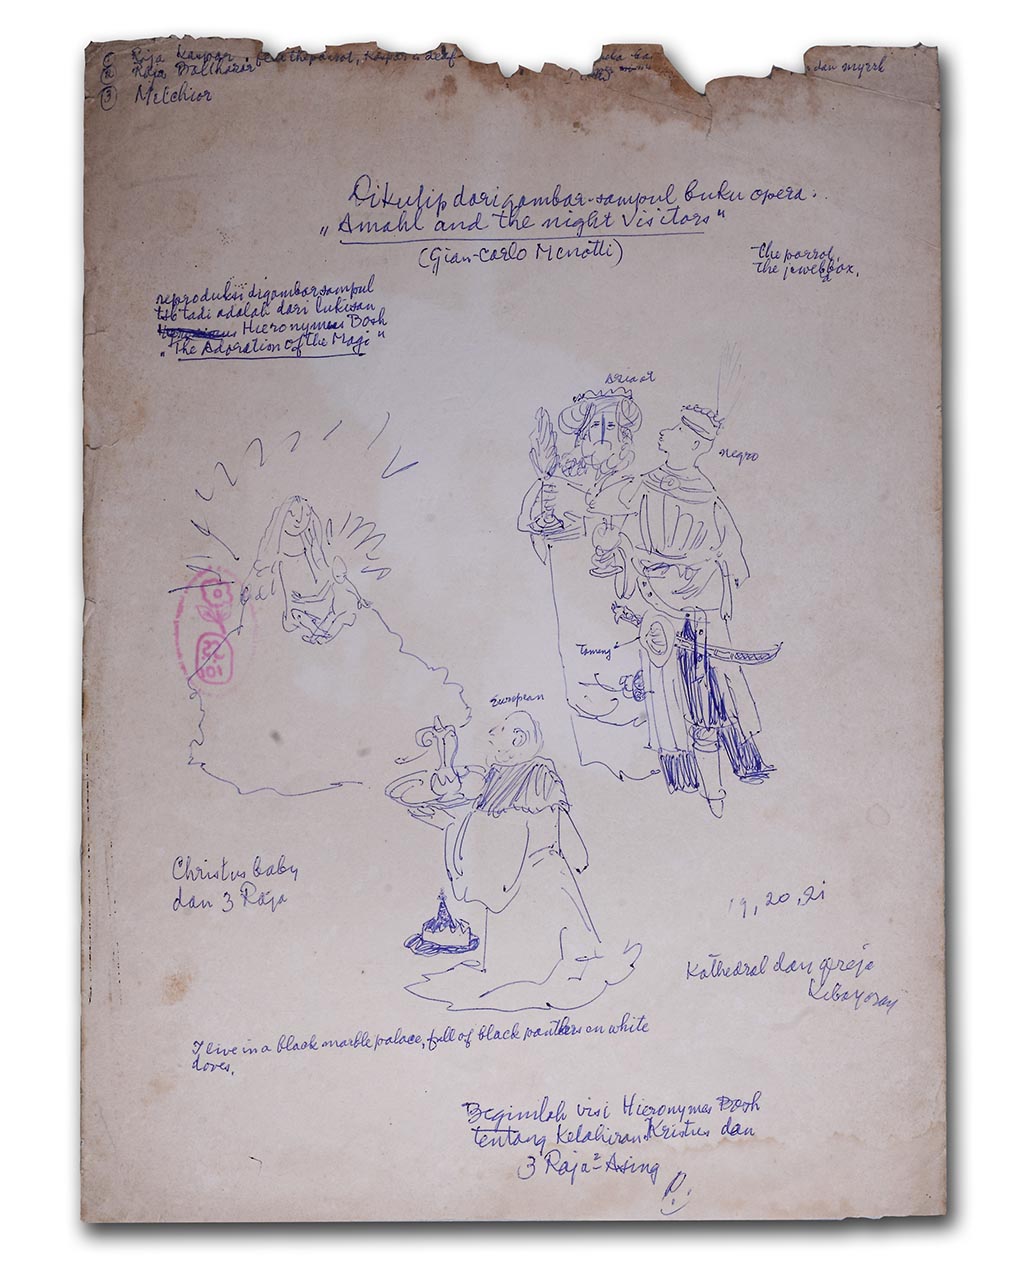 ① Raja Kaspar - parrot, Kaspar is deaf
② Raja Balthazar dan myrrh
③ Melchior
Dikutip dari gambar-sampul buku opera.
„Amahl and the night Visitors"
(Gian-Carlo Menotti)
the parrot,
the jewelbox,
reproduksi digambar sampul
tsb tadi adalah dari lukisan
Hieronymas Bosh
„The Adoration of the Magi"
negro
tameng
European
Christus baby
dan 3 Raja
19, 20, 21
Kathedral dan gereja
I live in a black marble palace, full of black panthers on white
doves.
Beginilah visi Hieronymas Bosh
tentang Kelahiran Kristus dan
3 Raja² Asing